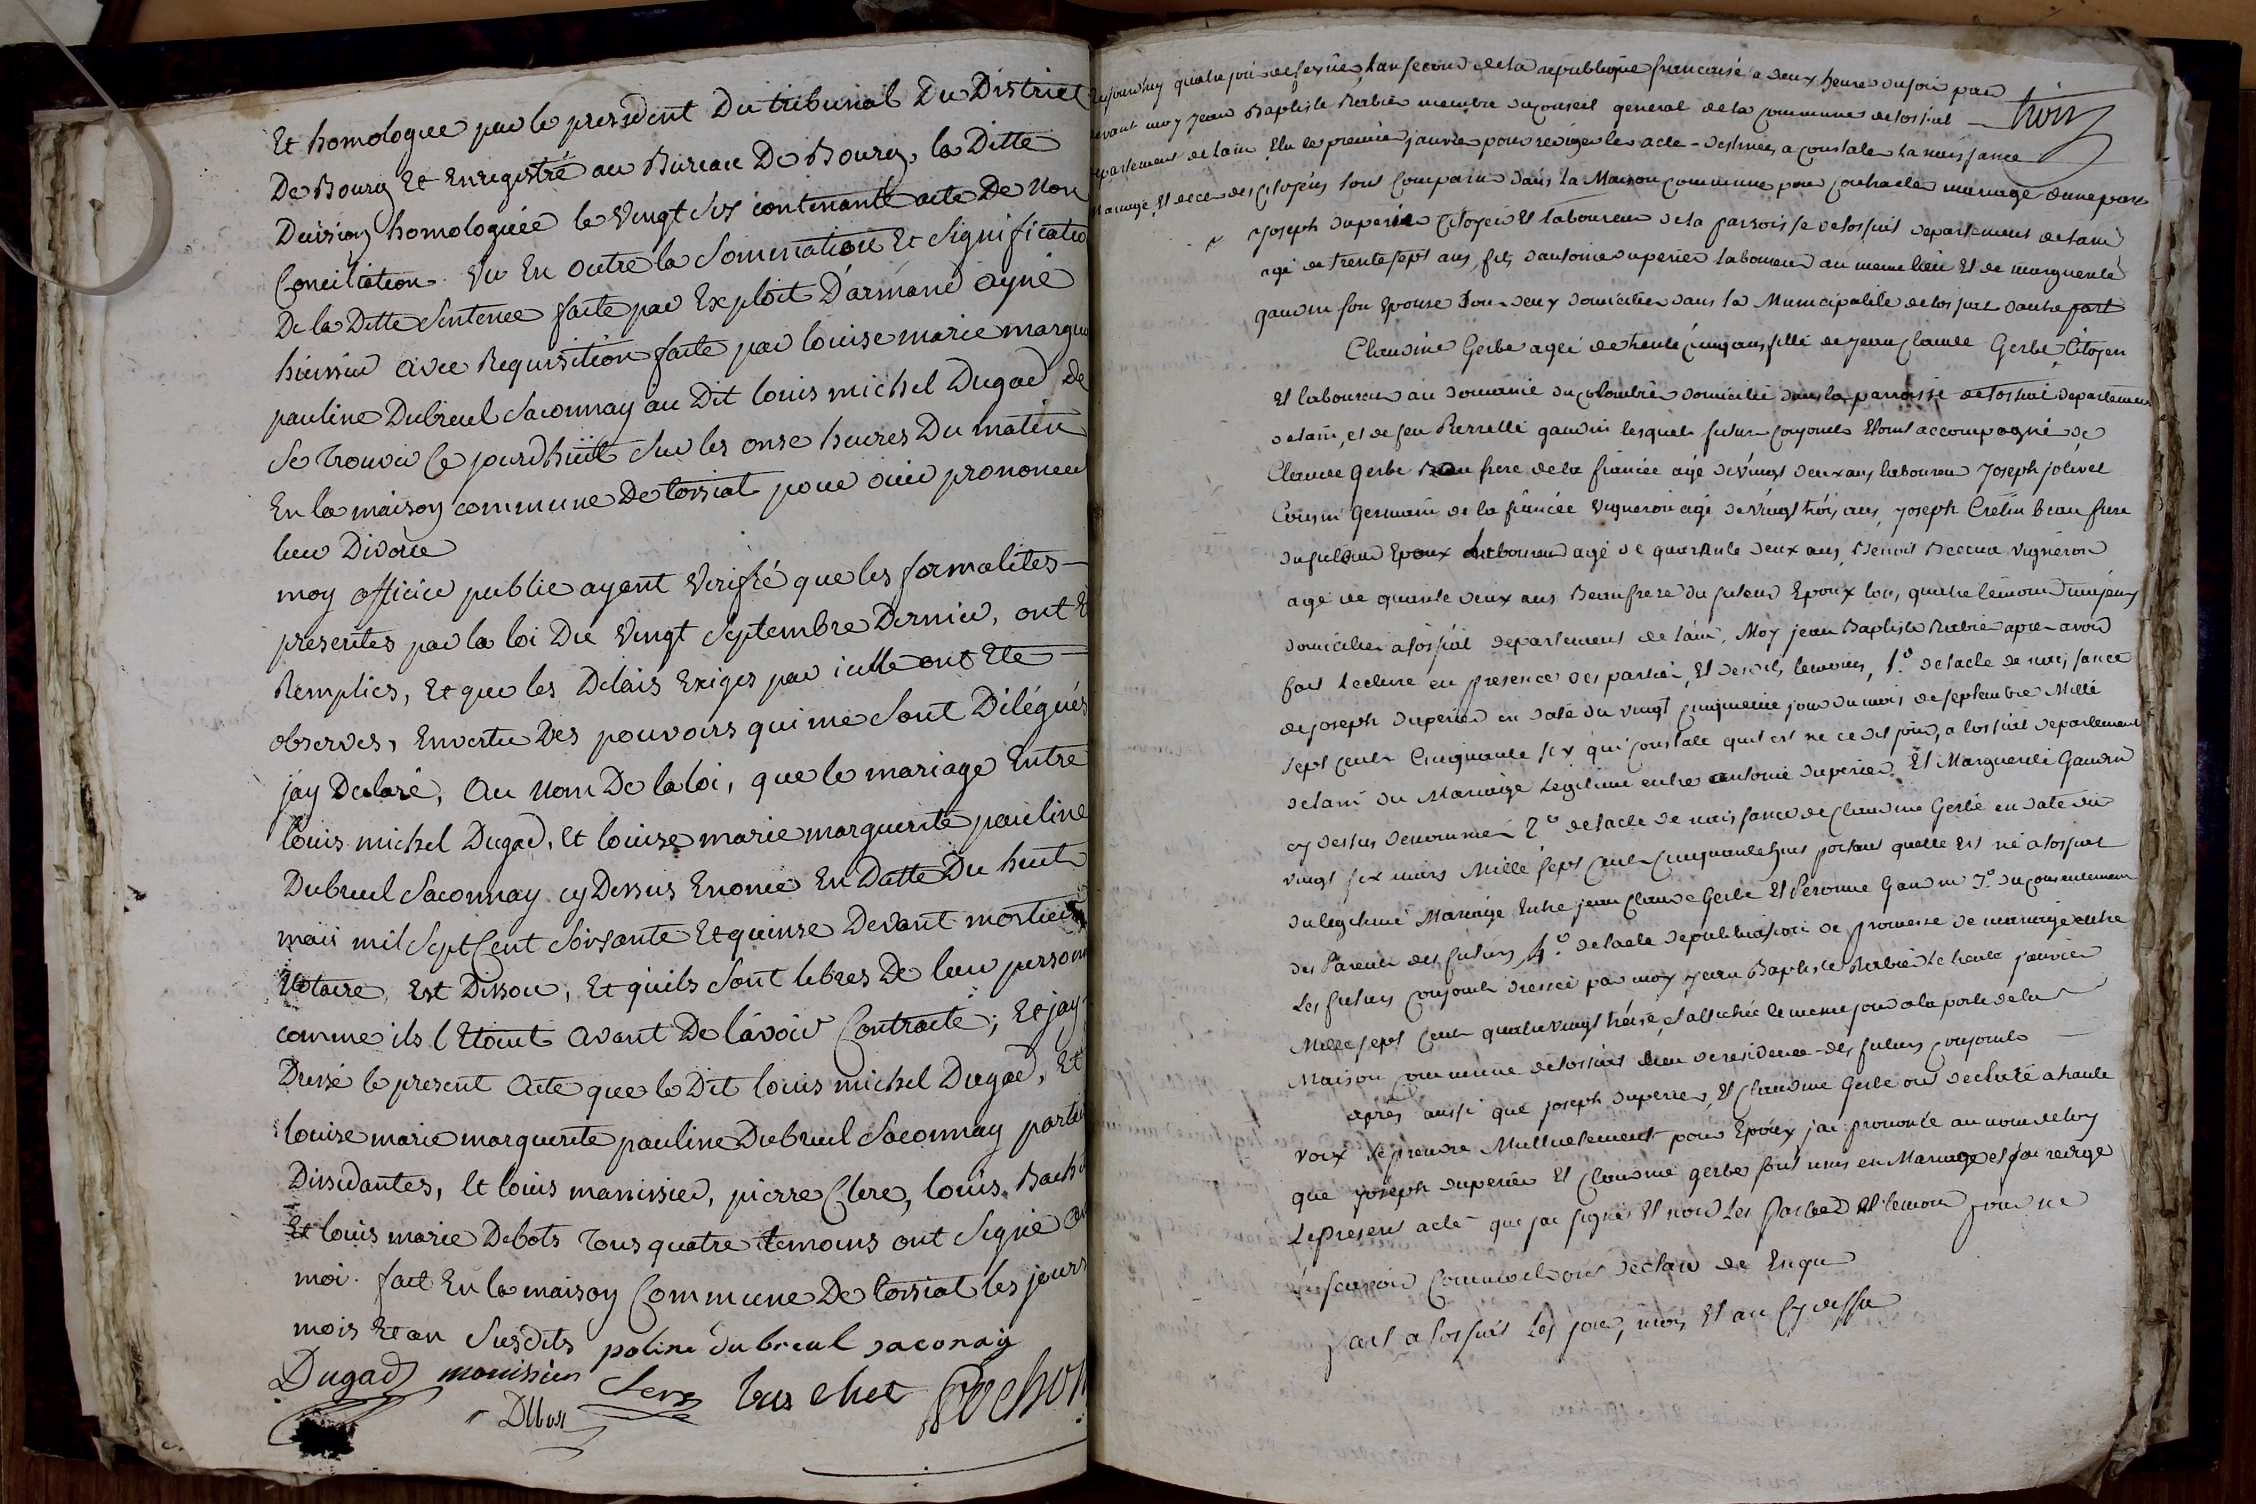 Et homologuee par le president Du tribunal Du District
De Bourg Et Enregistré au Bureau De Bourg, la Ditte
Decision homologuée le Vingt Six contenante acte De Non
Conciliation. Vu En Outre la Sommation Et Significatio
De la Ditte Sentence faite par Exploit D'armand ayné
huissier avec Requisition faite par louise marie margue
pauline Dubreul Saconnay au Dit louis michel Dugad De
Se Trouver Ce jourdhuit Sur les onse heures Du matin
En la maison commune De torsiat pour ouir prononcer
leur Divorce
moy officier public ayant Verifié que les formalites
presentes par la loi Du Vingt Septembre Dernier, ont E
Remplies, Et que les Delais Exiges par icelle ont Ete
observes, Envertu Des pouvoirs qui me Sont Délégués
jay Declaré, Au Nom De la loi, que le mariage Entre
louis michel Dugad, Et louise marie marguerite pauline
Dubreul Saconnay cy Dessus Enoncé En Datte Du huit
mais mil Sept Cent Soixante Et quinse Devant mortier
Notaire, Est Dissou, Et quils Sont libres De leur personn
comme ils l'Etoint avant De lavoir Contracté; Et jay
Dressé le present Acte que le Dit louis michel Dugad, Et
louise marie marguerite pauline Dubreul Saconnay partie
Dissidantes, Et louis manissier, pierre Clerc, louis Bach
Et louis marie Debots Tous quatre temoins ont Signé av
moi. fait En la maison Commune De torsiat les jours
mois Et an Susdits poline dubreul saconaÿ
Dugad manissier
Debost
trois
aujourdhuy quatre jour de fevrier lan second de la republique francaise a deux heure du soir par
devant moy jean Baptiste Berbier membre du conseil general de la commune de tossiat
departement de lain Elu le premier janvier pour rediger les acte destinées a constater la naissance
Mariage Et deces des Citoyens sont Comparu dans la Maison commune pour contracter mariage dune part
joseph duperier Citoyen Et laboureur de la parroisse de tossiat departement de lain
agé de trente sept ans, fils dantoine duperier laboureur au meme lieu Et de marguerite
gaudin son Epouse Tous deux domicilier dans la Municipalité de tossiat dautre part
Claudine Gerbe ageé de trente cinq ans fille de jean Claude Gerbe Citoyen
Et laboureur au domaine du colombier domicilié dans la parroisse de tossiat departement
de lain, et de feu Pierrette gaudin lesquels futur conjoints Etoint accompagné de
Claude gerbe frere de la fiancée agé de vingt deux ans laboureur joseph jolivet
Cousin Germain de la fiancée vigneron agé de vingt trois ans, joseph Cretin beau frere
du futur Epoux laboureur agé de quarante deux ans, Benoit vigneron
agé de quarante deux ans Beaufrere du futur Epoux tous quatre temoins majeurs
domicilier a tossiat departement de lain, Moy jean Baptiste Berbier apres avoir
fait lecture en presence des parties, Et desdits temoins, 1.º de lacte de naissance
de joseph duperier en date du vingt cinquieme jour du mois de septembre Mille
sept cents Cinquante six qui constate quil est né ce dit jour, a tossiat departement
de lain du Mariage legitime entre antoine duperier Et Marguerite Gaudin
cy dessus denommés 2º de lacte de naissance de Claudine Gerbe en date du
vingt six mars Mille sept Cents Cinquantehuit portant quelle Est né a tossiat
du legitime Mariage Entre jean Claude Gerbe Et Peronne Gaudin 3.º du consentement
des Parents des futurs 4.º de lacte de publication de promesse de mariage entre
Les futurs conjoints dressé par moy jean Baptiste Berbier le trente janvier
Mille sept Cents quatrevingt treise, Et affichée le meme jour a la porte de la
Maison commune de tossiat lieu de residence des futurs conjoints
apres aussi que joseph duperier, Et Claudine Gerbe ont declaré a haute
voix se prendre Mutuelement pour Epoux jai prononcé au nom de loy
que joseph duperier Et Claudine gerbe sont unis en Mariage et jai redigé
Le present acte que jai signé Et non Les Parties Et temoin pour ne
scavoir comme ils ont declaré de Enquis
fait a tossiat Les jour, mois Et an Cy dessu